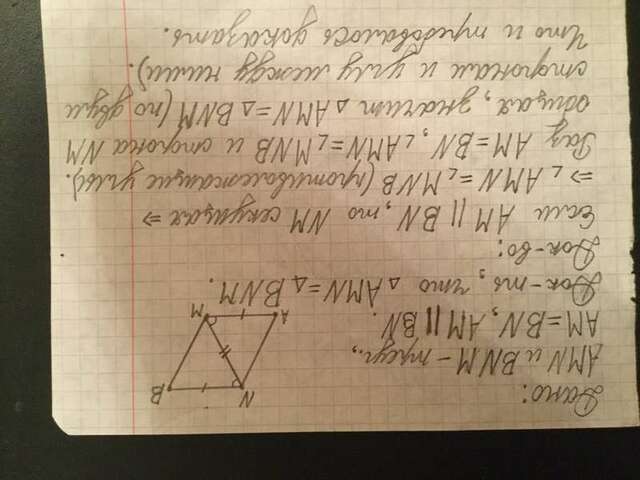 Дано:
AMN и BNM – треуг.,
AM = BN, AM || BN.
Док-ть, что △ AMN = △ BNM.
Док-во:
Если AM || BN, то NM секущая ⇒
⇒ ∠ AMN = ∠ MNB (противолежащие углы).
Раз AM = BN, ∠ AMN = ∠ MNB и сторона NM
общая, значит △ AMN = △ BNM (по двум
сторонам и углу между ними).
Что и требовалось доказать.
N
B
A
M